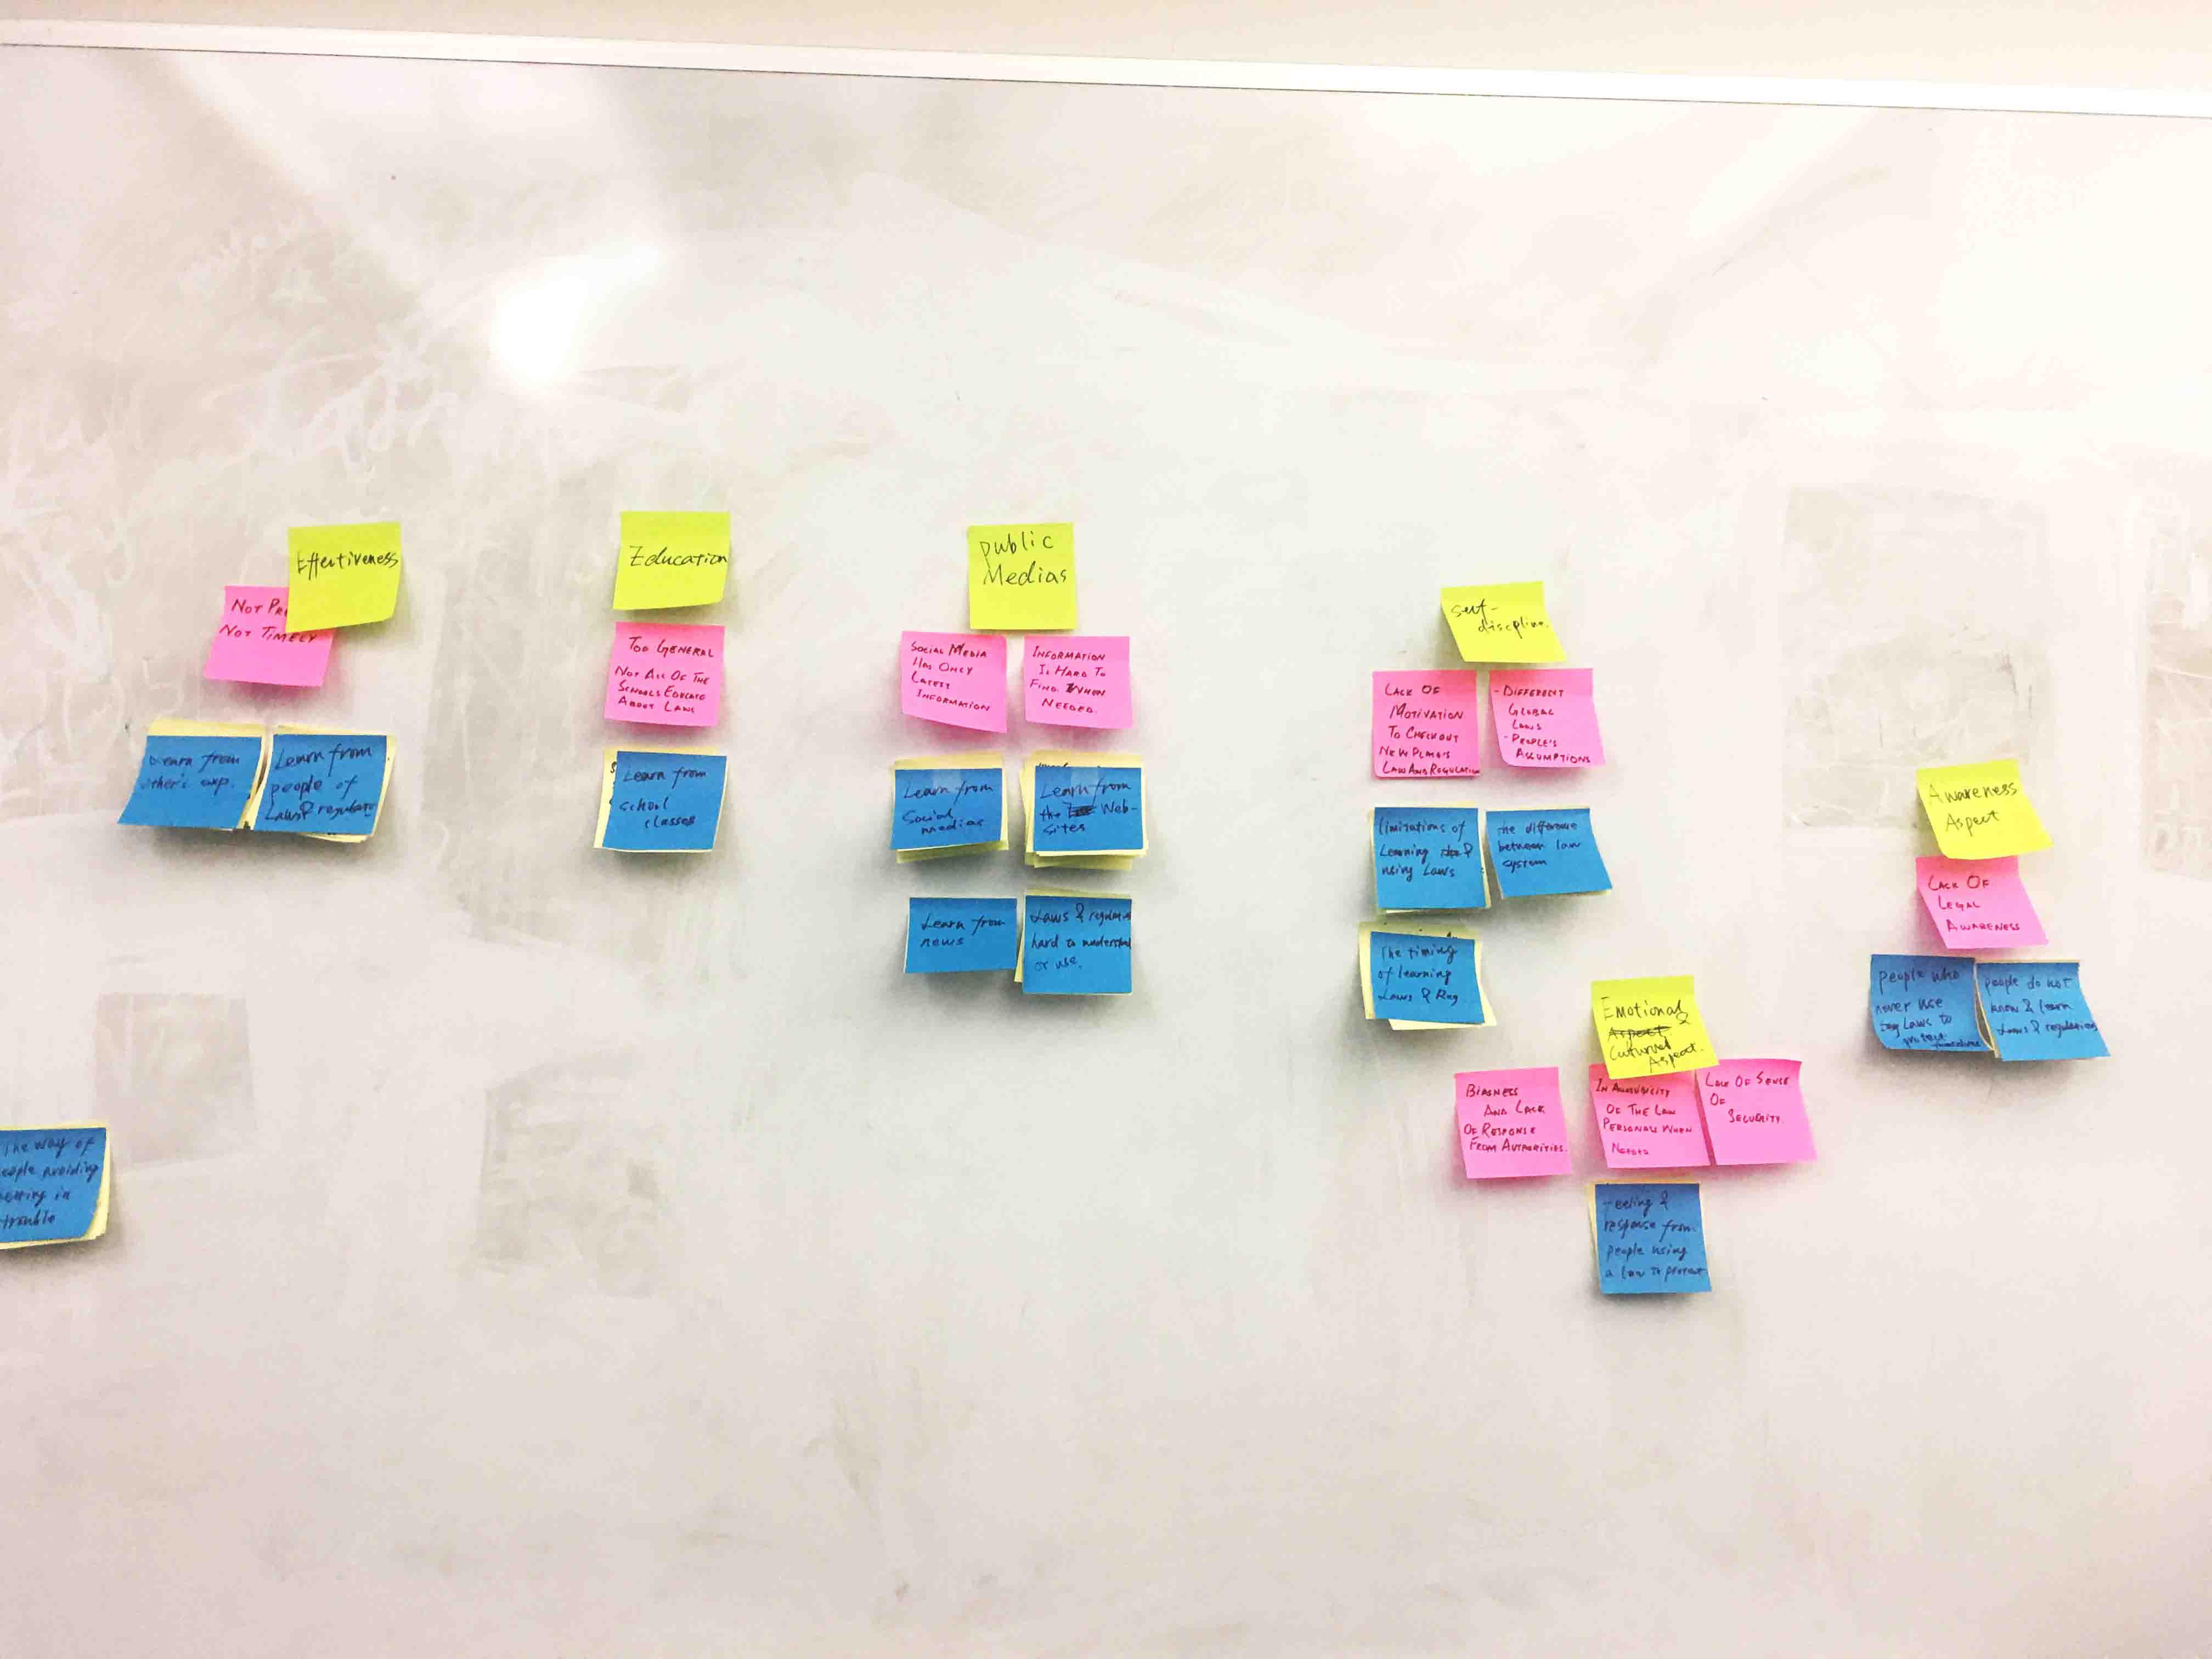 Effectiveness
NOT
NOT TIMELY
Learn from
other's exp.
Learn from
people of
Laws &
Education
TOO GENERAL
NOT ALL OF THE
SCHOOLS EDUCATE
ABOUT LAW
Learn from
school
classes
public
Medias
SOCIAL MEDIA
HAS ONLY
LATEST
INFORMATION
INFORMATION
IS HARD TO
FIND WHEN
NEEDED.
Learn from
Social
medias
Learn from
the Web-
sites
Learn from
news
Laws &
hard to understand
or use.
self-
discipline.
LACK OF
MOTIVATION
TO CHECKOUT
NEW PLACE'S
LAW AND REGULATION
- DIFFERENT
GLOBAL
LAWS
- PEOPLE'S
ASSUMPTIONS
limitations of
Learning &
using Laws
The difference
between law
system
The timing
of learning
Laws & Reg.
Emotional
Aspect &
Cultural
Aspect.
BIASNESS
AND LACK
OF RESPONSE
FROM AUTHORITIES.
OF THE LAW
PERSONALS WHEN
LACK OF SENSE
OF
SECURITY.
Feeling &
response from
people using
a law to protect
Awareness
Aspect
LACK OF
LEGAL
AWARENESS
people who
never use
Laws to
protect
people do not
know & learn
Laws & regulations
The way of
people avoiding
getting in
trouble